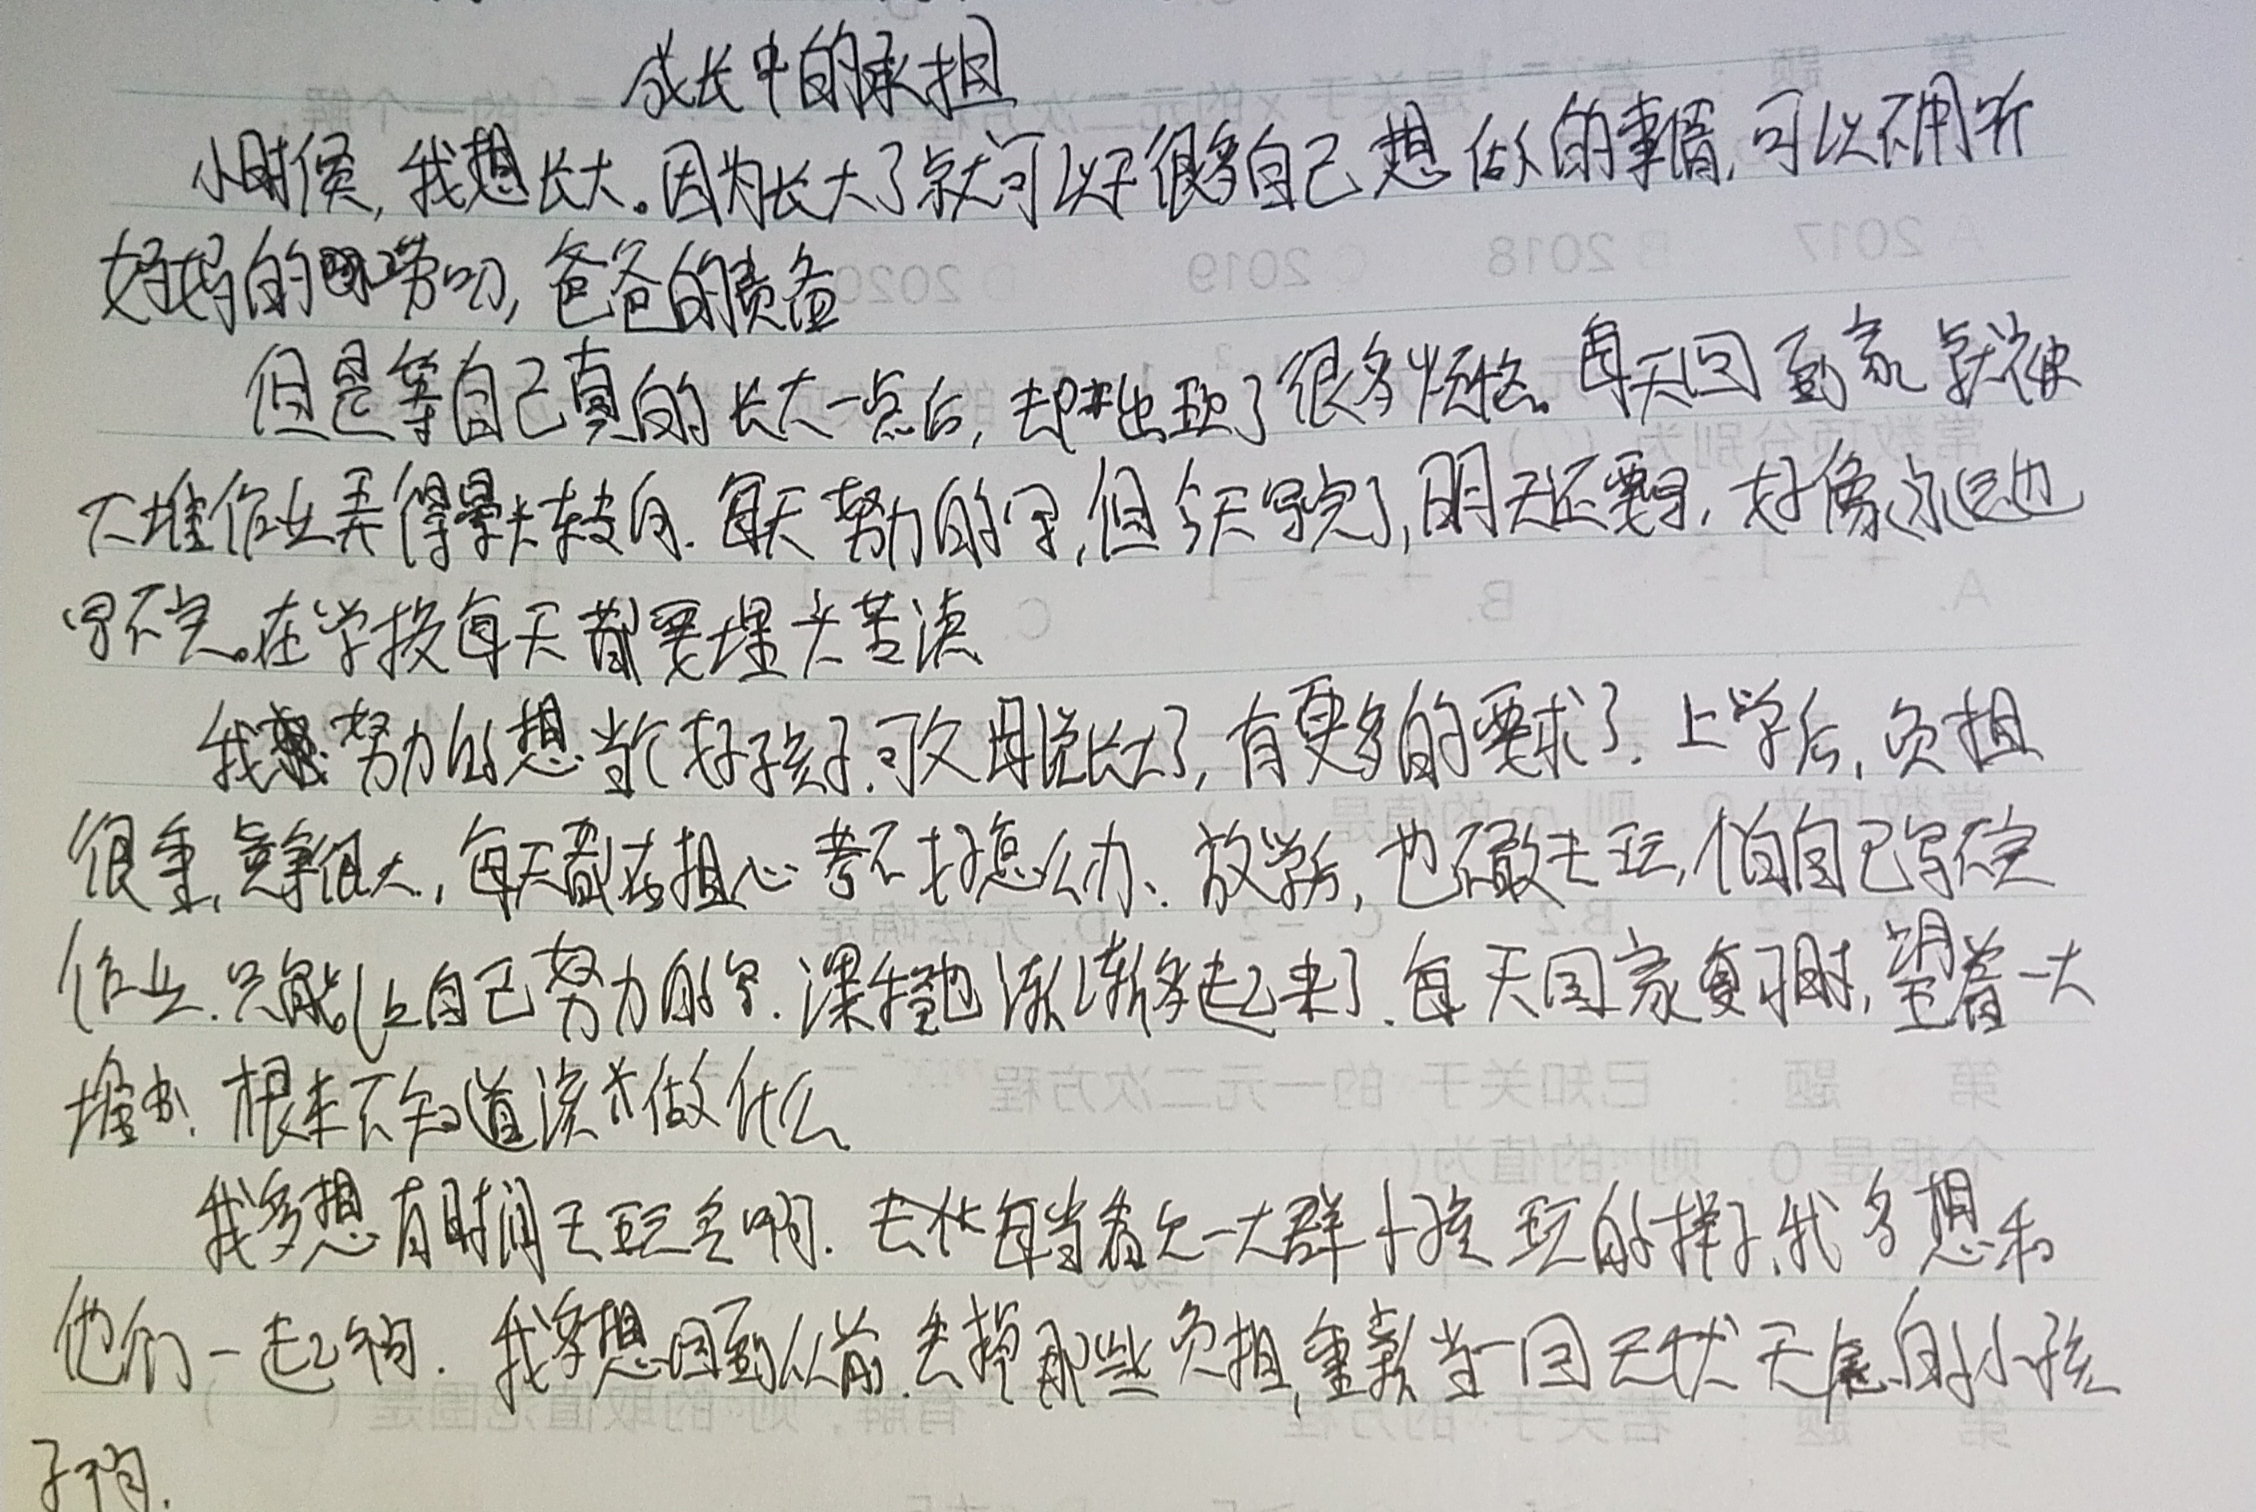 成长中的承担
小时候,我想长大。因为长大了就可以好很多自己想做的事情,可以不用听
妈妈的唠叨,爸爸的责备
但是等自己真的长大一点后,却出现了很多烦恼。每天回到家就被
大堆作业弄得晕头转向.每天努力的写,但今天写完了,明天还要写,好像永远也
写不完。在学校每天都要埋头苦读
我努力的想当个好孩子.可父母说长大了,有更多的要求了.上学后,负担
很重,竞争很大,每天都在担心考不好怎么办、放学后,也不敢去玩,怕自己写不完
作业.只能让自己努力的写.课程也渐渐多起来了.每天回家复习时,望着一大
堆书.根本不知道该做什么
我多想有时间去玩会啊.每当看见一大群小孩玩的样子,我多想和
他们一起啊.我多想回到从前.去掉那些负担,重新当一回无忧无虑的小孩
子啊.